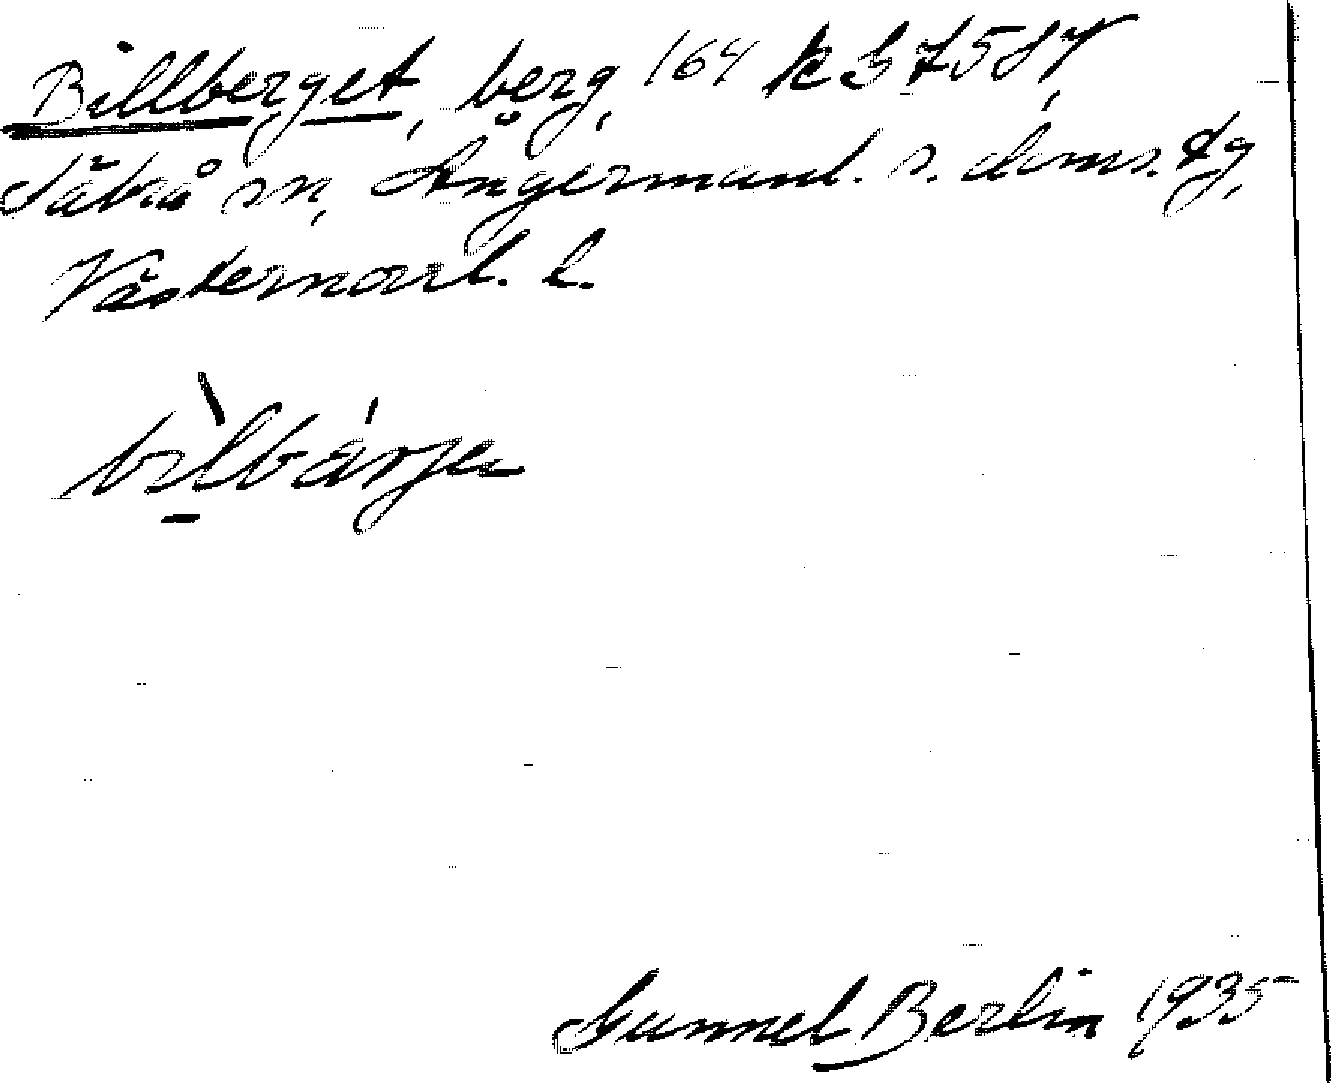 Billberget, berg, 164 k 37587,
Säbrå sn, Ångermanl. s. doms. tg,
Västernorrl. l.
bìlbárje
Gunnel Berlin 1935